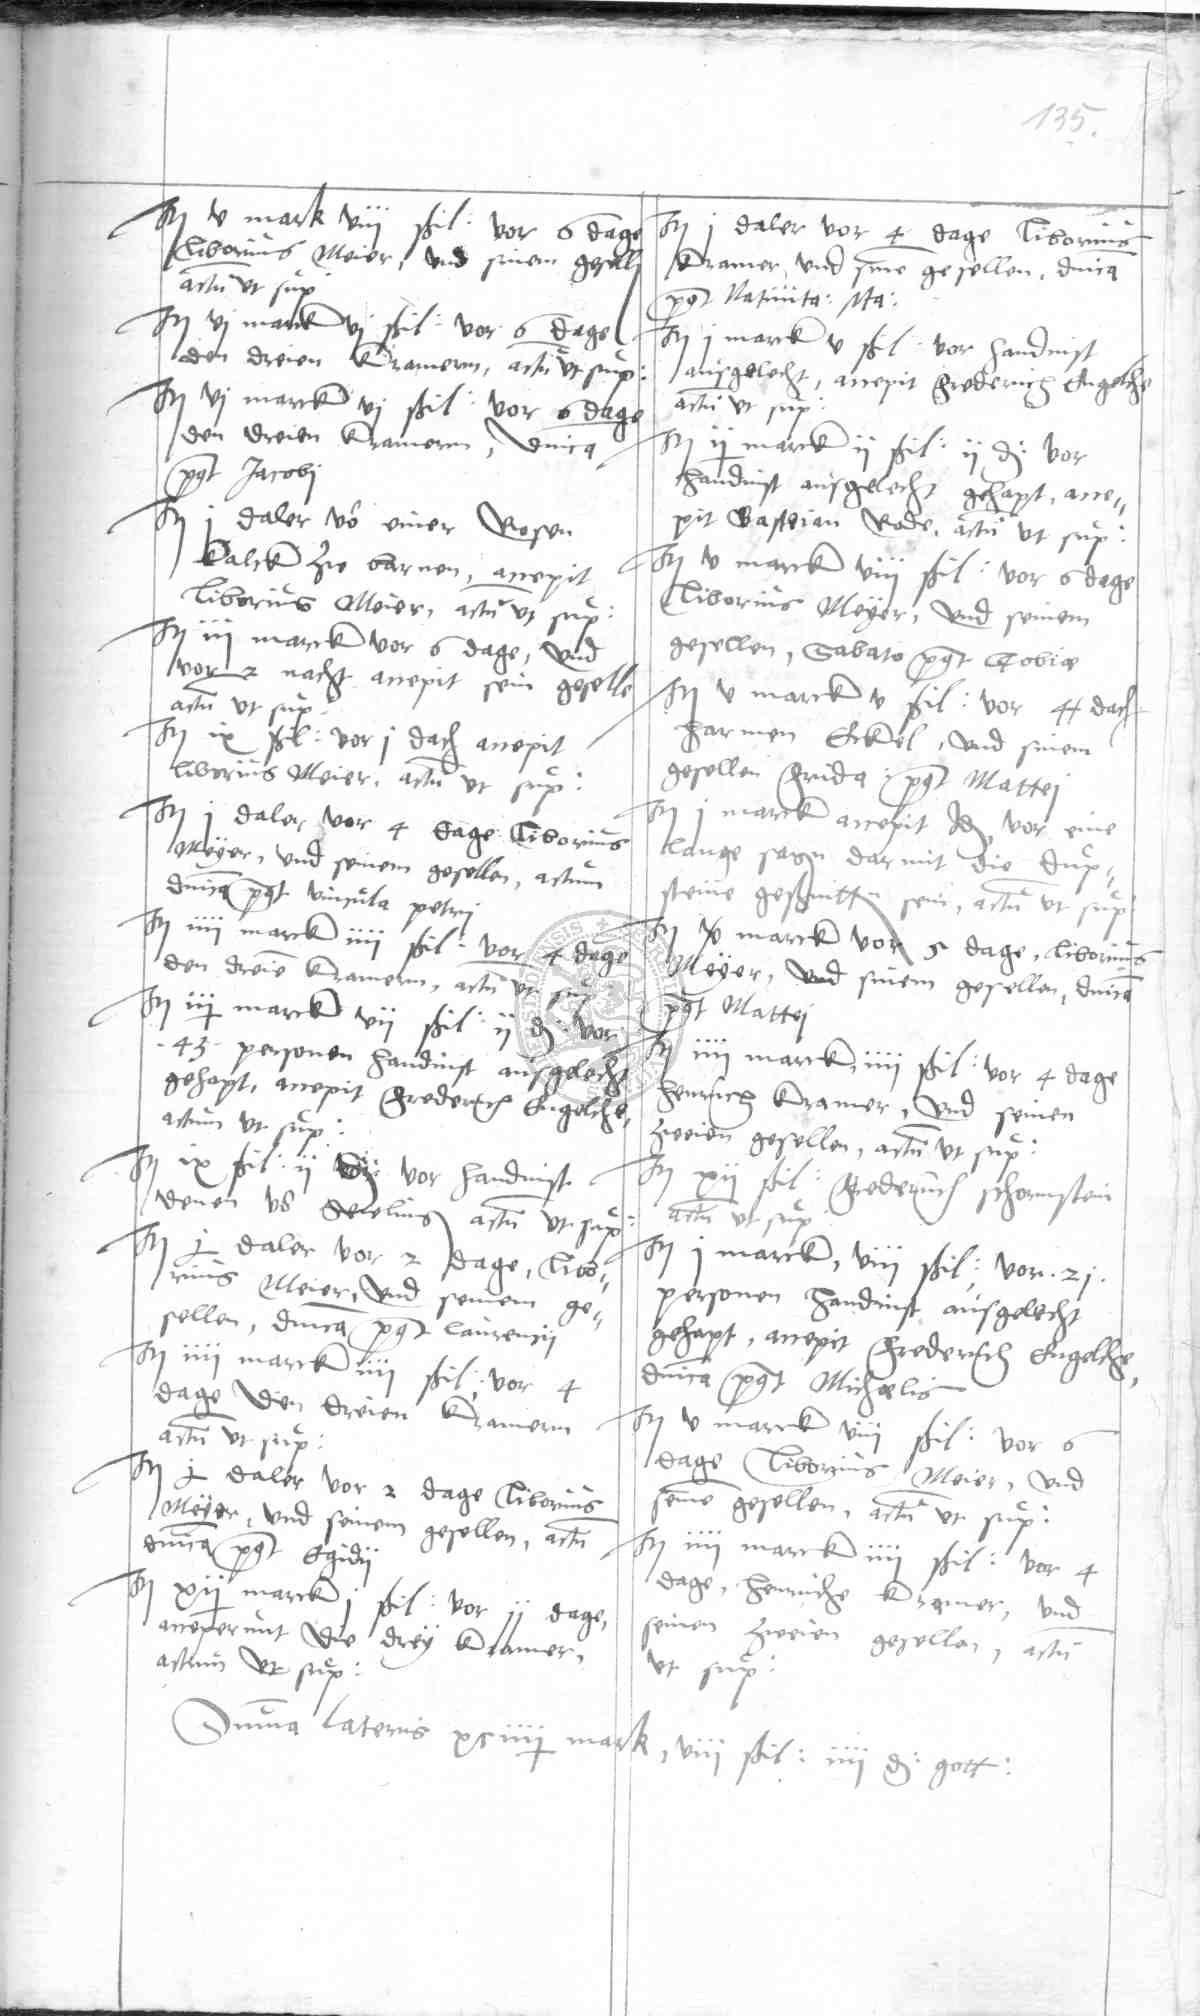 135.
It v mark viij ßil: vor 6 dage
Liborius Meier, und sinem gesell
actu ut sup
It vj marck vj ßil: vor 6 dage
den dreien Kramern, actu ut sup:
It vj marck vj ßil: vor 6 dage
den dreien Kramern, dnica
post Jacobj
It j daler vo einer Rosen
kalck zue barnen, accepit
Liborius Meier, actu ut sup:
It iij marck vor 6 dage, und
vor 2 nacht accepit sein geselle
actu ut sup:
It ix ßil: vor j dach accepit
liborius Meier, actu ut sup:
It j daler vor 4 dage Liborius
Meÿer, und seinem gesellen, actum
dnica post vincula petrj
It iiij marck iiij ßil: vor 4 dage
den dreie Kramern, actu ut sup
It iij marck vij ßil: ij d: vor
43 personen handinst ausgelecht
gehapt, accepit Frederich Engelche,
actum ut sup:
It ix ßil: ij vor handinst
denen actu ut sup:
It j daler vor 2 dage, Libo-
rius Meier, und seinem ge-
sellen, dnica post laurencij
It iiij marck iiij ßil: vor 4
dage den dreien Kramern
actu ut sup:
It j daler vor 2 dage Liborius
Meÿer, und seinem gesellen, actu
dnica post Egidij
It xij marck j ßil: vor jj dage,
acceperunt die dreÿ Kramer,
actum ut sup:
It j daler vor 4 dage Liborius
Kramer, und sine gesellen, dnica
post Nativita: Ma:
It j marck v ßil: vor handinst
ausgelecht, accepit Frederich Engelche
actu ut sup:
It ij marck ij ßil: ij d: vor
handinst ausgelecht gehapt, acce-
pit Bastian Rode, actu ut sup:
It v marck viij ßil: vor 6 dage
Liborius Meÿer, und seinem
gesellen, Sabato post
It v marck v ßil: vor dach
harmen Eckel, und sinem
gesellen frida: post Mattej
It j marck accepit vor eine
lange sagen darmit die dup-
steine geßnitten sein, actu ut sup:
It marck vor 5 dage, liborius
Meÿer, und sinem gesellen, dnica
post Mattej
It iiij marck, iiij ßil: vor 4 dage
henrich Kramer, und seinen
zweien gesellen, actu ut sup:
It xij ßil: Frederich schornstein
actu ut sup
It j marck, viij ßil: vor 2j
personen handinst ausgelecht
gehapt, accepit Frederich Engelche,
dnica post Michaelis
It v marck viij ßil: vor 6
dage Liborius Meier, und
seine gesellen, actu ut sup:
It iiij marck iiij ßil: vor 4
dage, henriche Kramer, und
seinen zweien gesellen, actu
ut sup:
Suma lateris xciiij mark, viij ßil: iiij d: gott: